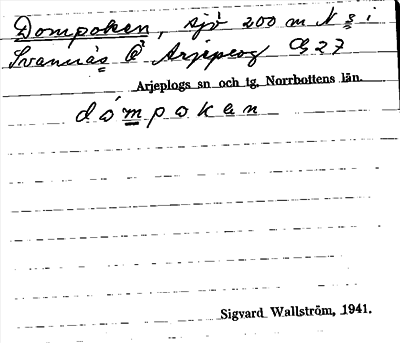 Dompoken, sjö 200 m N 3 i
Svannäs Arjeplog G 27
Arjeplogs sn och tg, Norrbottens län.
dómpokan
Sigvard Wallström, 1941.